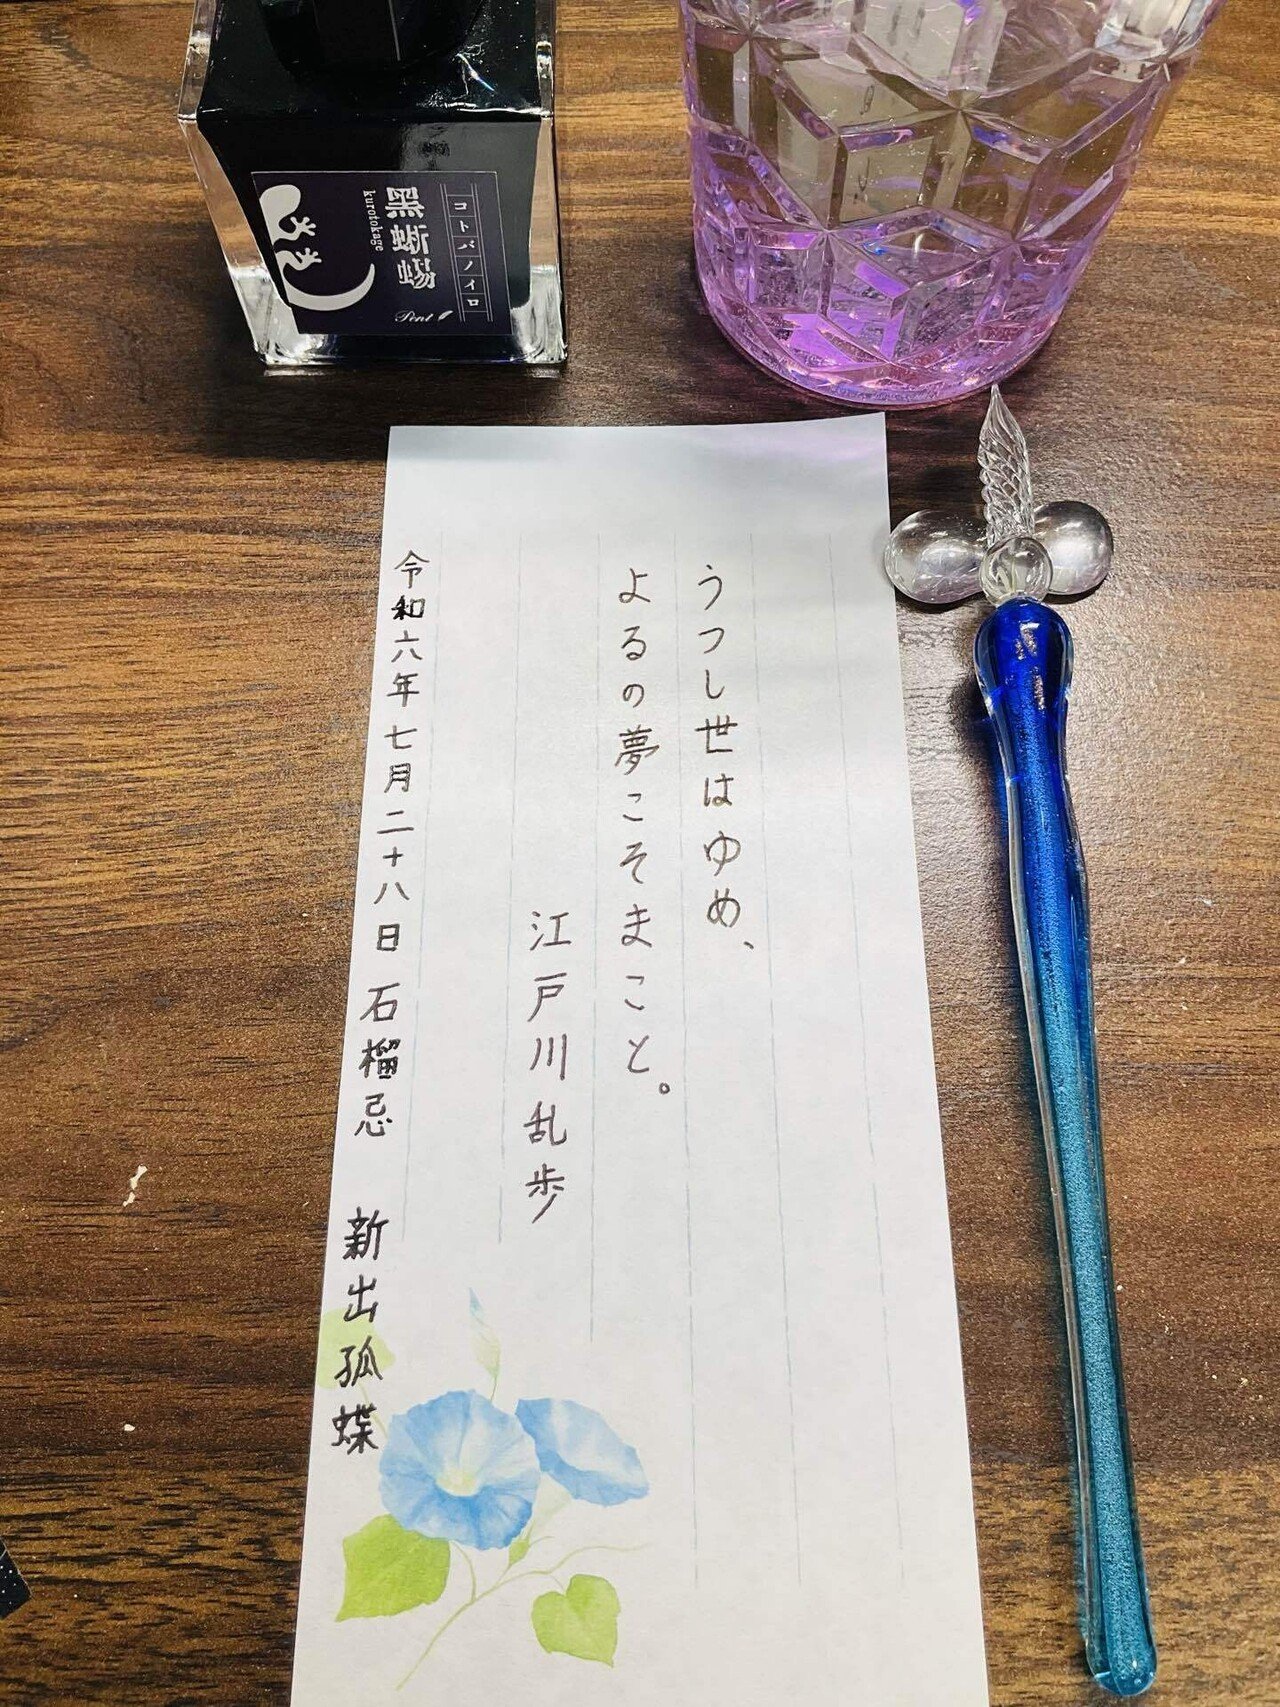 コトバノイロ
黒蜥蜴
kurotokage
Pent
うつし世はゆめ、
よるの夢こそまこと。
江戸川乱歩
令和六年七月二十八日 石榴忌 新出孤蝶